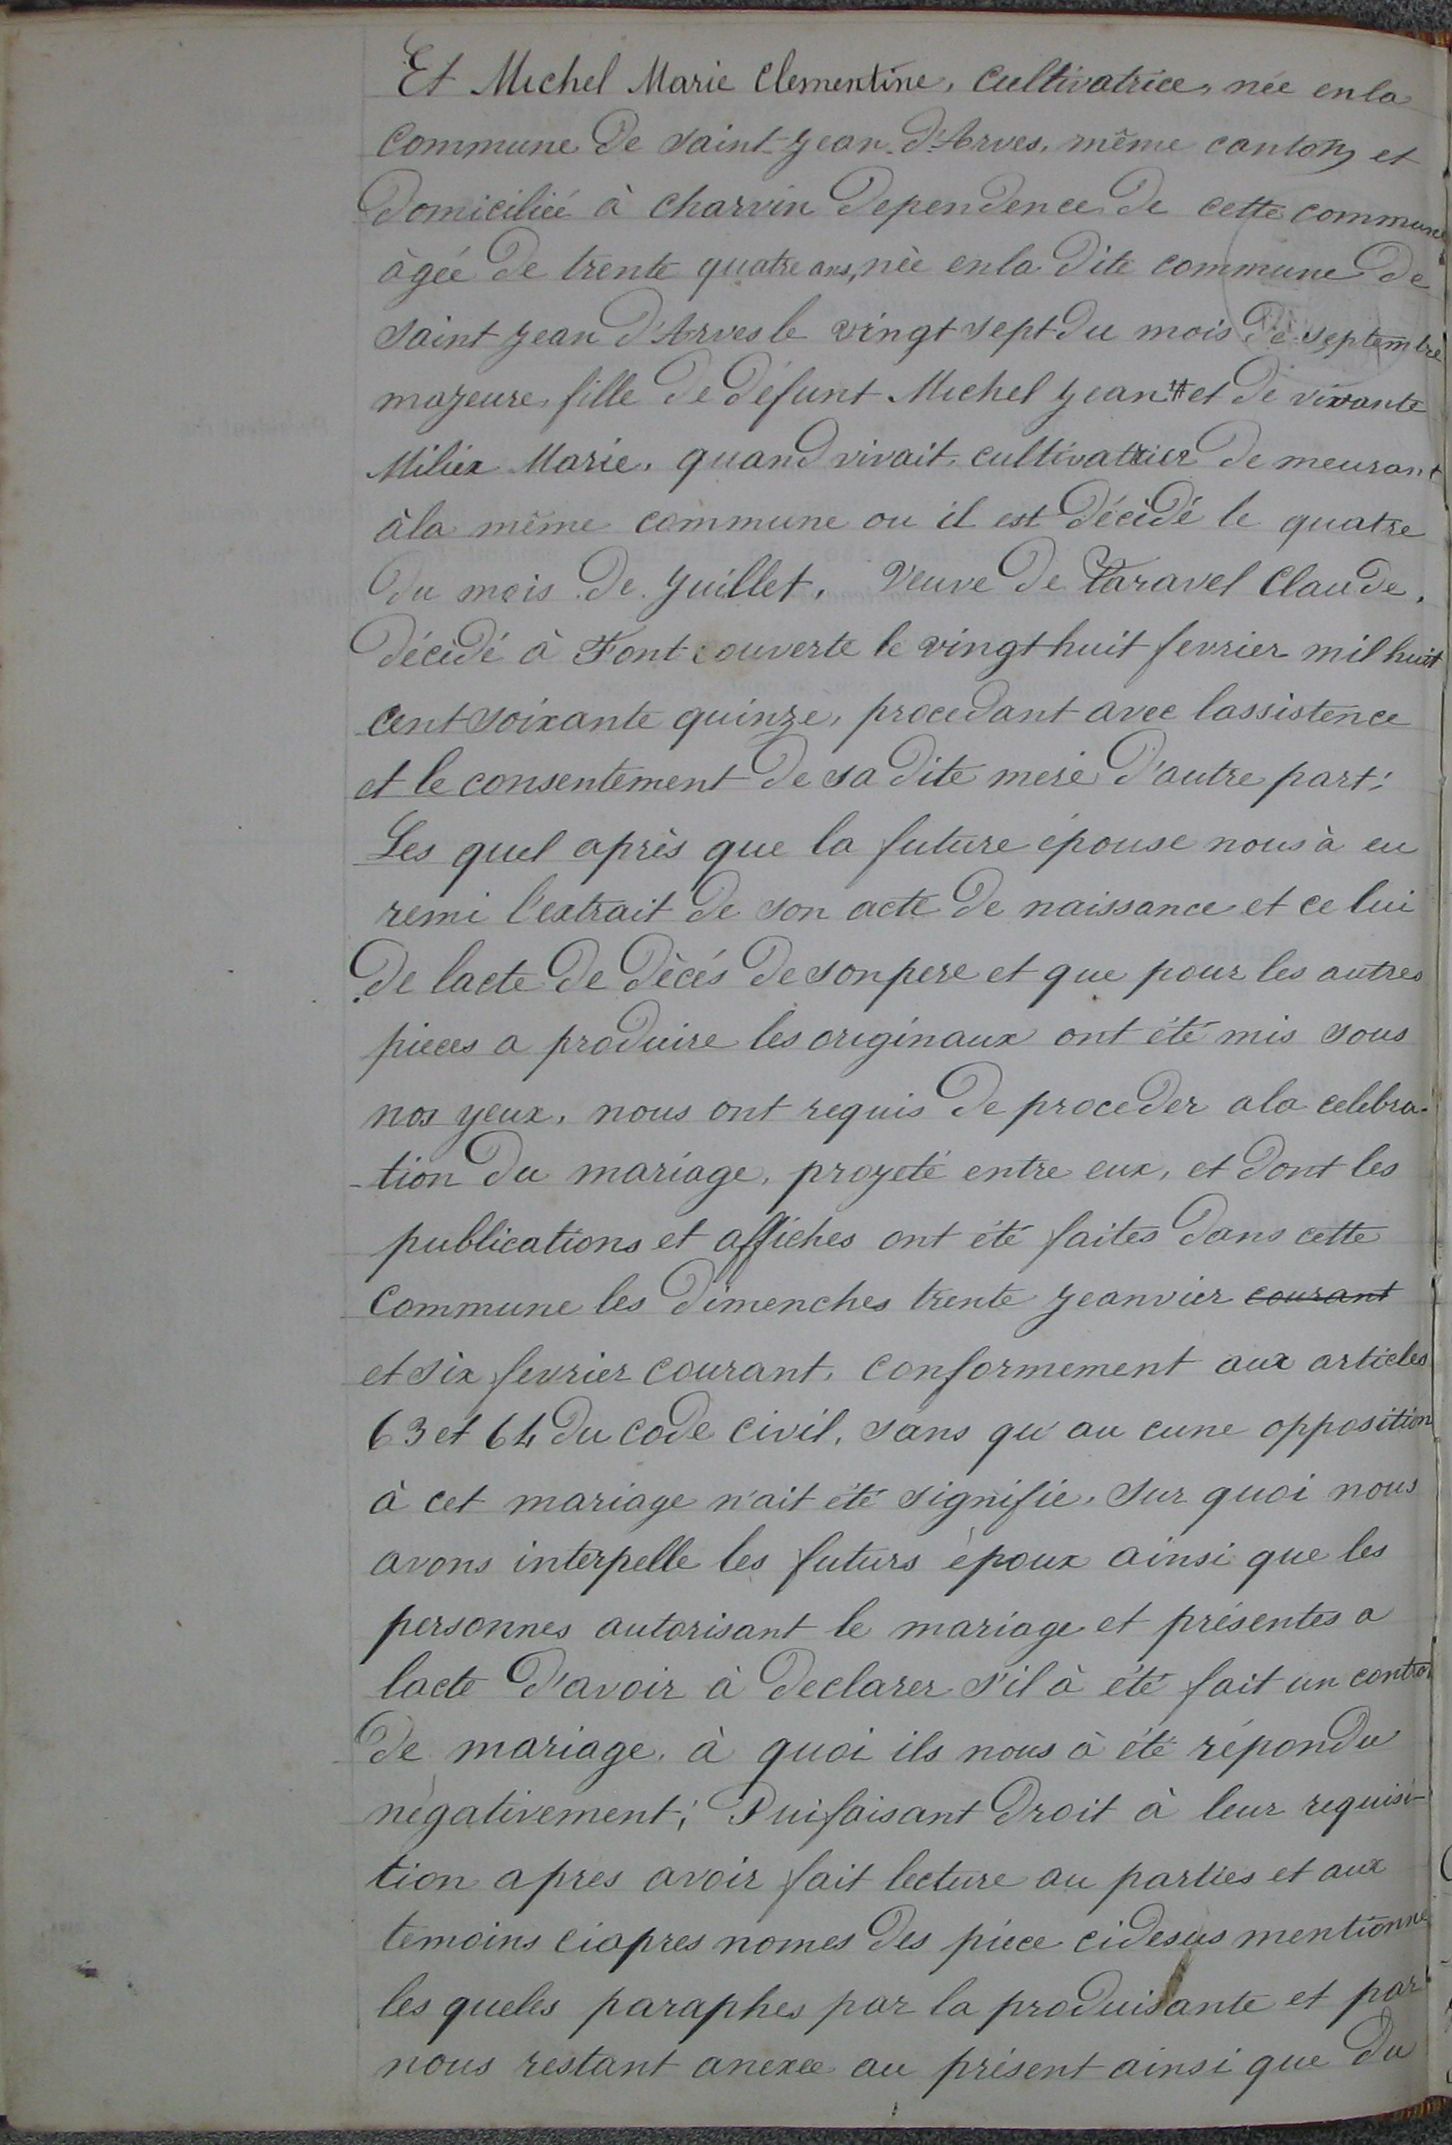 Et Michel Marie Clementine, Cultivatrice, née en la
Commune de Saint-Jean-d'Arves, même canton et
domiciliée à Charvin dependence de cette commune
àgée de trente quatre ans, née en la dite commune de
Saint Jean d'Arves le vingt sept du mois de septembre
majeure, fille de défunt Michel Jean # et de vivante
Milliex Marie, quand vivait, cultivatrier demeurant
à la même commune ou il est décédé le quatre
du mois de Juillet, Veuve de Taravel Claude,
décédé à Font-couverte le vingt huit fevrier mil huit
cent soixante quinze, procedant avec lassistence
et le consentement de sa dite mere d'autre part;
Les quel après que la future épouse nous à eu
remi l'extrait de son acte de naissance et ce lui
de lacte de dècés de son pere et que pour les autres
pieces a produire les originaux ont été mis sous
nos yeux, nous ont requis de proceder a la celebra-
-tion du mariage, projeté entre eux, et dont les
publications et affiches ont été faites dans cette
Commune les dimenches trente Jeanvier courant
et six fevrier courant, conformement aux articles
63 et 64 du code civil, sans qu'au cune opposition
à cet mariage n'ait été signifie, Sur quoi nous
avons interpelle les futurs èpoux ainsi que les
personnes autorisant le mariage et présentes a
lacte d'avoir à declarer s'il à été fait un contrat
de mariage, à quoi ils nous à été répondu
nègativement; Puifaisant droit à leur requisi-
tion apres avoir fait lecture au parties et aux
temoins ciapres nomes des piece cidesus mentionne
les queles paraphes par la produisante et par
nous restant anexee au présent ainsi que du